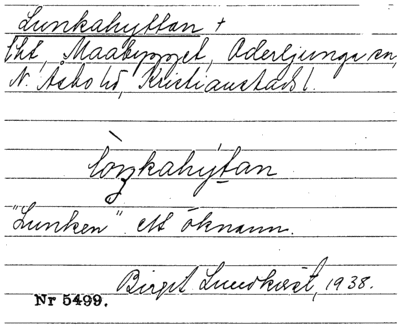 Lunkahyttan +
Lht, Maabygget, Oderljunga sn,
N. Åsbo hd, Kristianstads l.
lòŋkahýtan
"Lunken" ett öknamn.
Birgit Lundkvist, 1938.
Nr 5499.